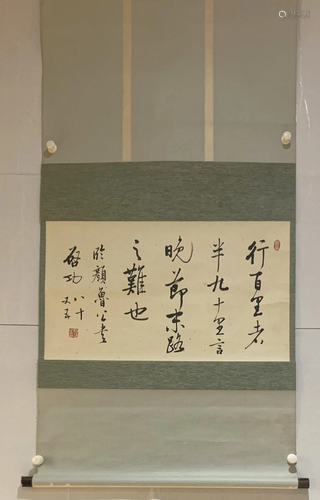 行百里者
半九十里言
晚節末路
之難也
臨顏魯公書
啓功八十
又五